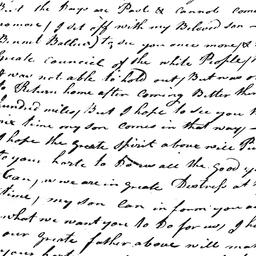 But the Days are Past & cannot come
no more, I set off with my Beloved son
Billiard) to see you once more, &
Greate councul of the white People,
I was not able to hold out, But was
to Return home after coming Better then
hundred miles, But I hope to see you
nix time my son comes in that way,
I hope the Greate Spirit above will
to your harte to Do us all the Good you
Can, as we are in Greate Distress at
time, my son Can in form you
what we want you to Do for us, I h
our Greate father above will ma
your